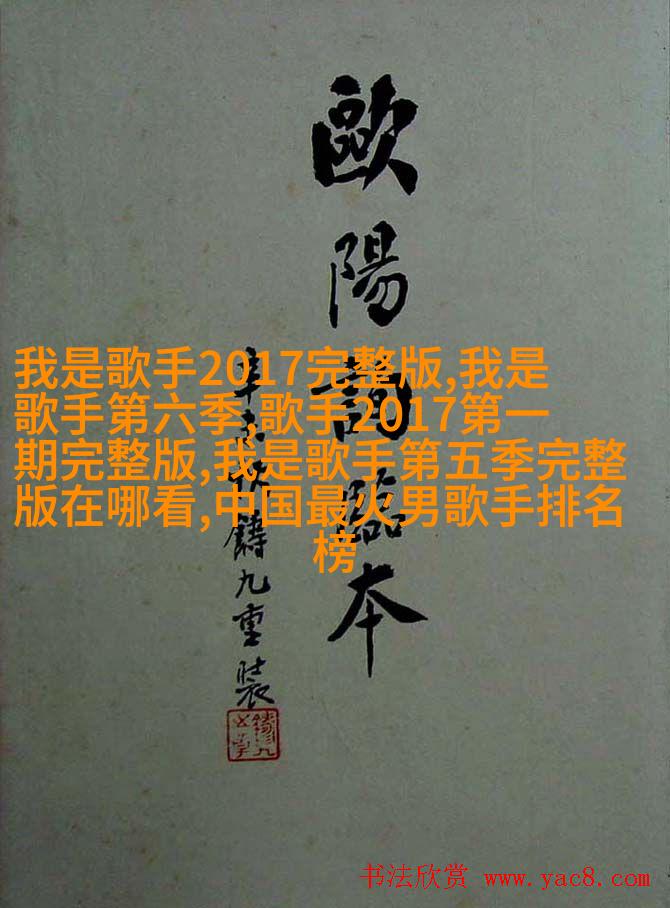 歐陽臨本
秋鑄九重裝
我是歌手2017完整版,我是
歌手第六季,歌手2017第一
期完整版,我是歌手第五季完整
版在哪看,中国最火男歌手排名
榜
书法欣赏 www.yac8.com